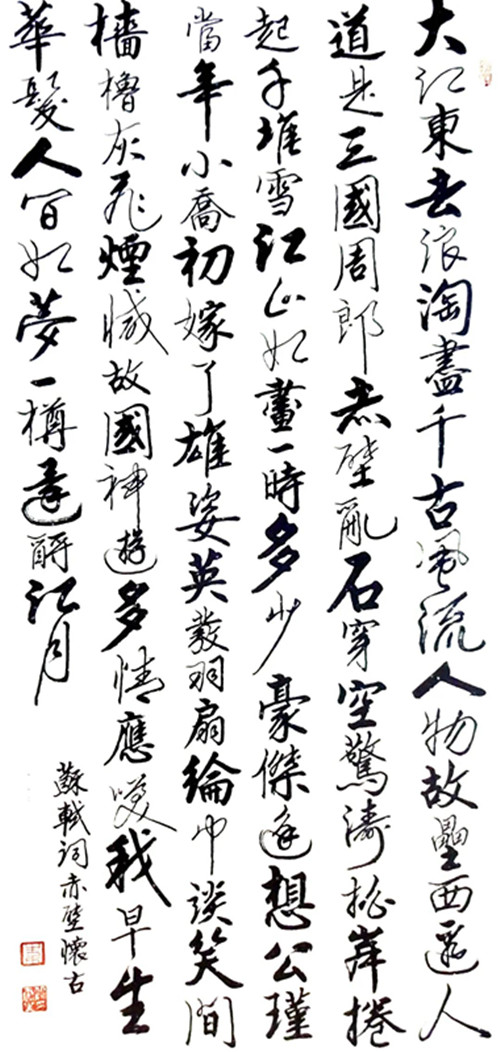 大江東去浪淘盡千古風流人物故壘西邊人
道是三國周郎赤壁亂石穿空驚濤拍岸捲
起千堆雪江山如畫一時多少豪傑遙想公瑾
當年小喬初嫁了雄姿英發羽扇綸巾談笑間
檣櫓灰飛煙滅故國神遊多情應笑我早生
華髮人間如夢一樽還酹江月
蘇軾詞赤壁懷古